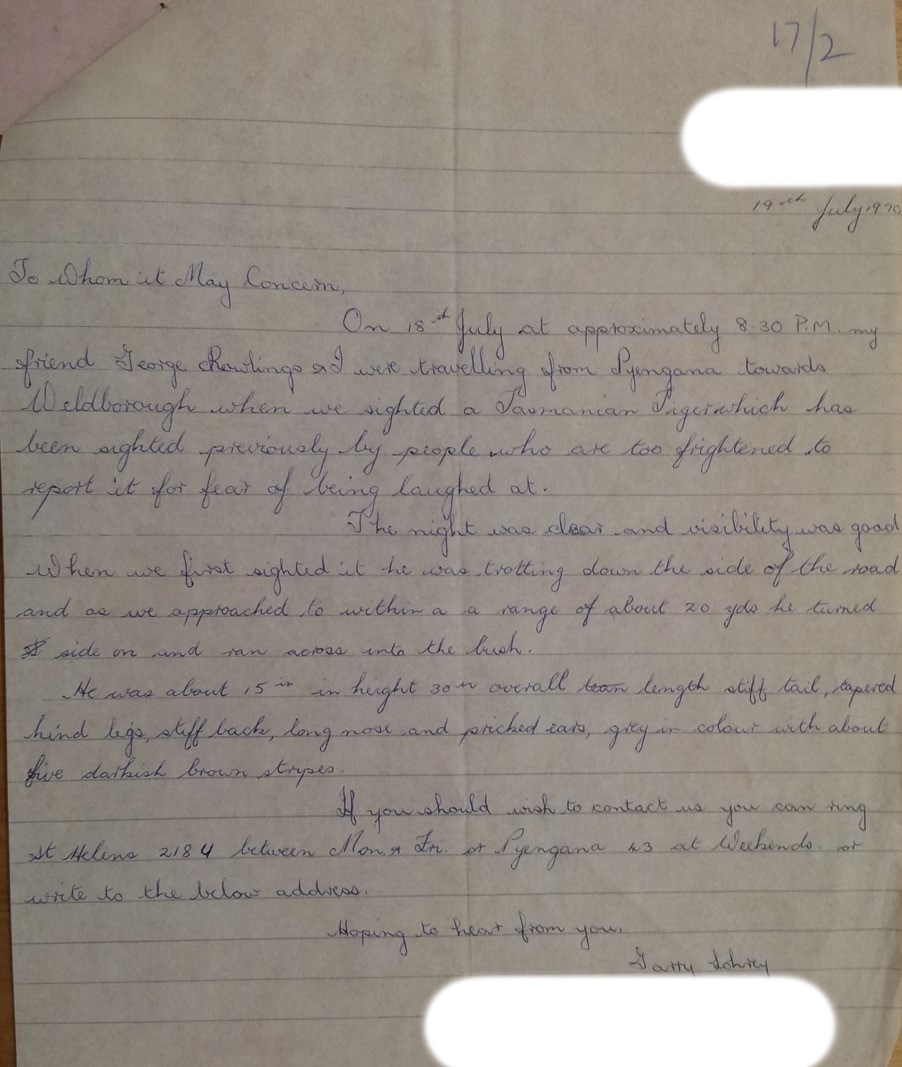 17/2
19th July 1970
To Whom it May Concern,
On 18th July at approximately 8.30 P.M. my
friend George Rowlings & I were travelling from Pyengana towards
Weldborough when we sighted a Tasmanian Tiger which has
been sighted previously by people who are too frightened to
report it for fear of being laughed at.
The night was clear and visibility was good
When we first sighted it he was trotting down the side of the road
and as we approached to within a a range of about 20 yds he turned
side on and ran across into the bush.
He was about 15 in in height 30 in overall length stiff tail, tapered
hind legs, stiff back, long nose and pricked ears, grey in colour with about
five darkish brown stripes.
If you should wish to contact us you can ring
St Helens 2184 between Mon & Fri. or Pyengana 43 at Weekends. or
write to the below address.
Hoping to hear from you.
Garry